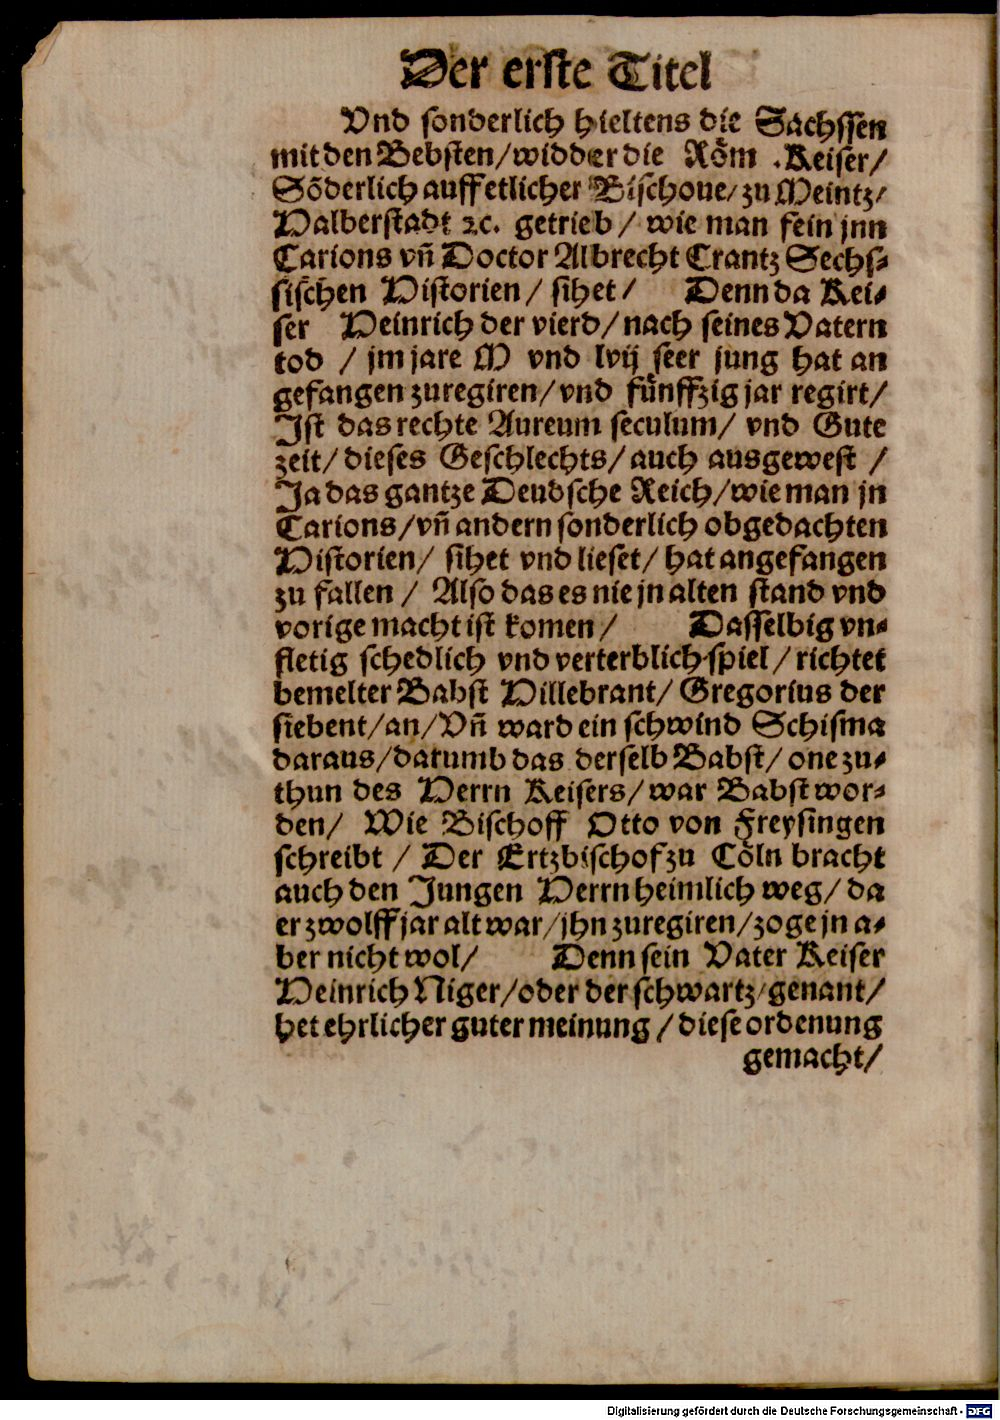 Der erſte Titel
Vnd ſonderlich hieltens die Sachſſen
mit den Bebſten/widder die Röm .Keiſer/
Sōderlich auff etlicher Biſchoue/ zu Meintz/
Halberſtadt ꝛc. getrieb / wie man fein jnn
Carions vn̄ Doctor Albrecht Crantz Sechſ⸗
ſiſchen Hiſtorien/ ſihet/ Denn da Kei⸗
ſer Heinrich der vierd/ nach ſeines Vatern
tod / jm jare M vnd lvij ſeer jung hat an
gefangen zuregiren/ vnd fünffzig jar regirt/
Iſt das rechte Aureum ſeculum/ vnd Gute
zeit/ dieſes Geſchlechts/ auch ausgeweſt /
Ja das gantze Deudſche Reich/wie man jn
Carions/vn̄ andern ſonderlich obgedachten
Hiſtorien/ ſihet vnd lieſet/ hat angefangen
zu fallen / Alſo das es nie jn alten ſtand vnd
vorige macht iſt komen/ Daſſelbig vn⸗
fletig ſchedlich vnd verterblich ſpiel/ richtet
bemelter Babſt Hillebrant/ Gregorius der
ſiebent/an/Vn̄ ward ein ſchwind Schiſma
daraus/darumb das derſelb Babſt/ one zu⸗
thun des Herrn Keiſers/ war Babſt wor⸗
den/ Wie Biſchoff Otto von Freyſingen
ſchreibt / Der Ertzbiſchof zu Cöln bracht
auch den Jungen Herrn heimlich weg/ da
er zwolff jar alt war/jhn zuregiren/zoge jn a⸗
ber nicht wol/ Denn ſein Vater Keiſer
Heinrich Niger/oder der ſchwartz/genant/
het ehrlicher guter meinung/ dieſe ordenung
gemacht/
Digitalisierung gefördert durch die Deutsche Forschungsgemeinschaft - DFG